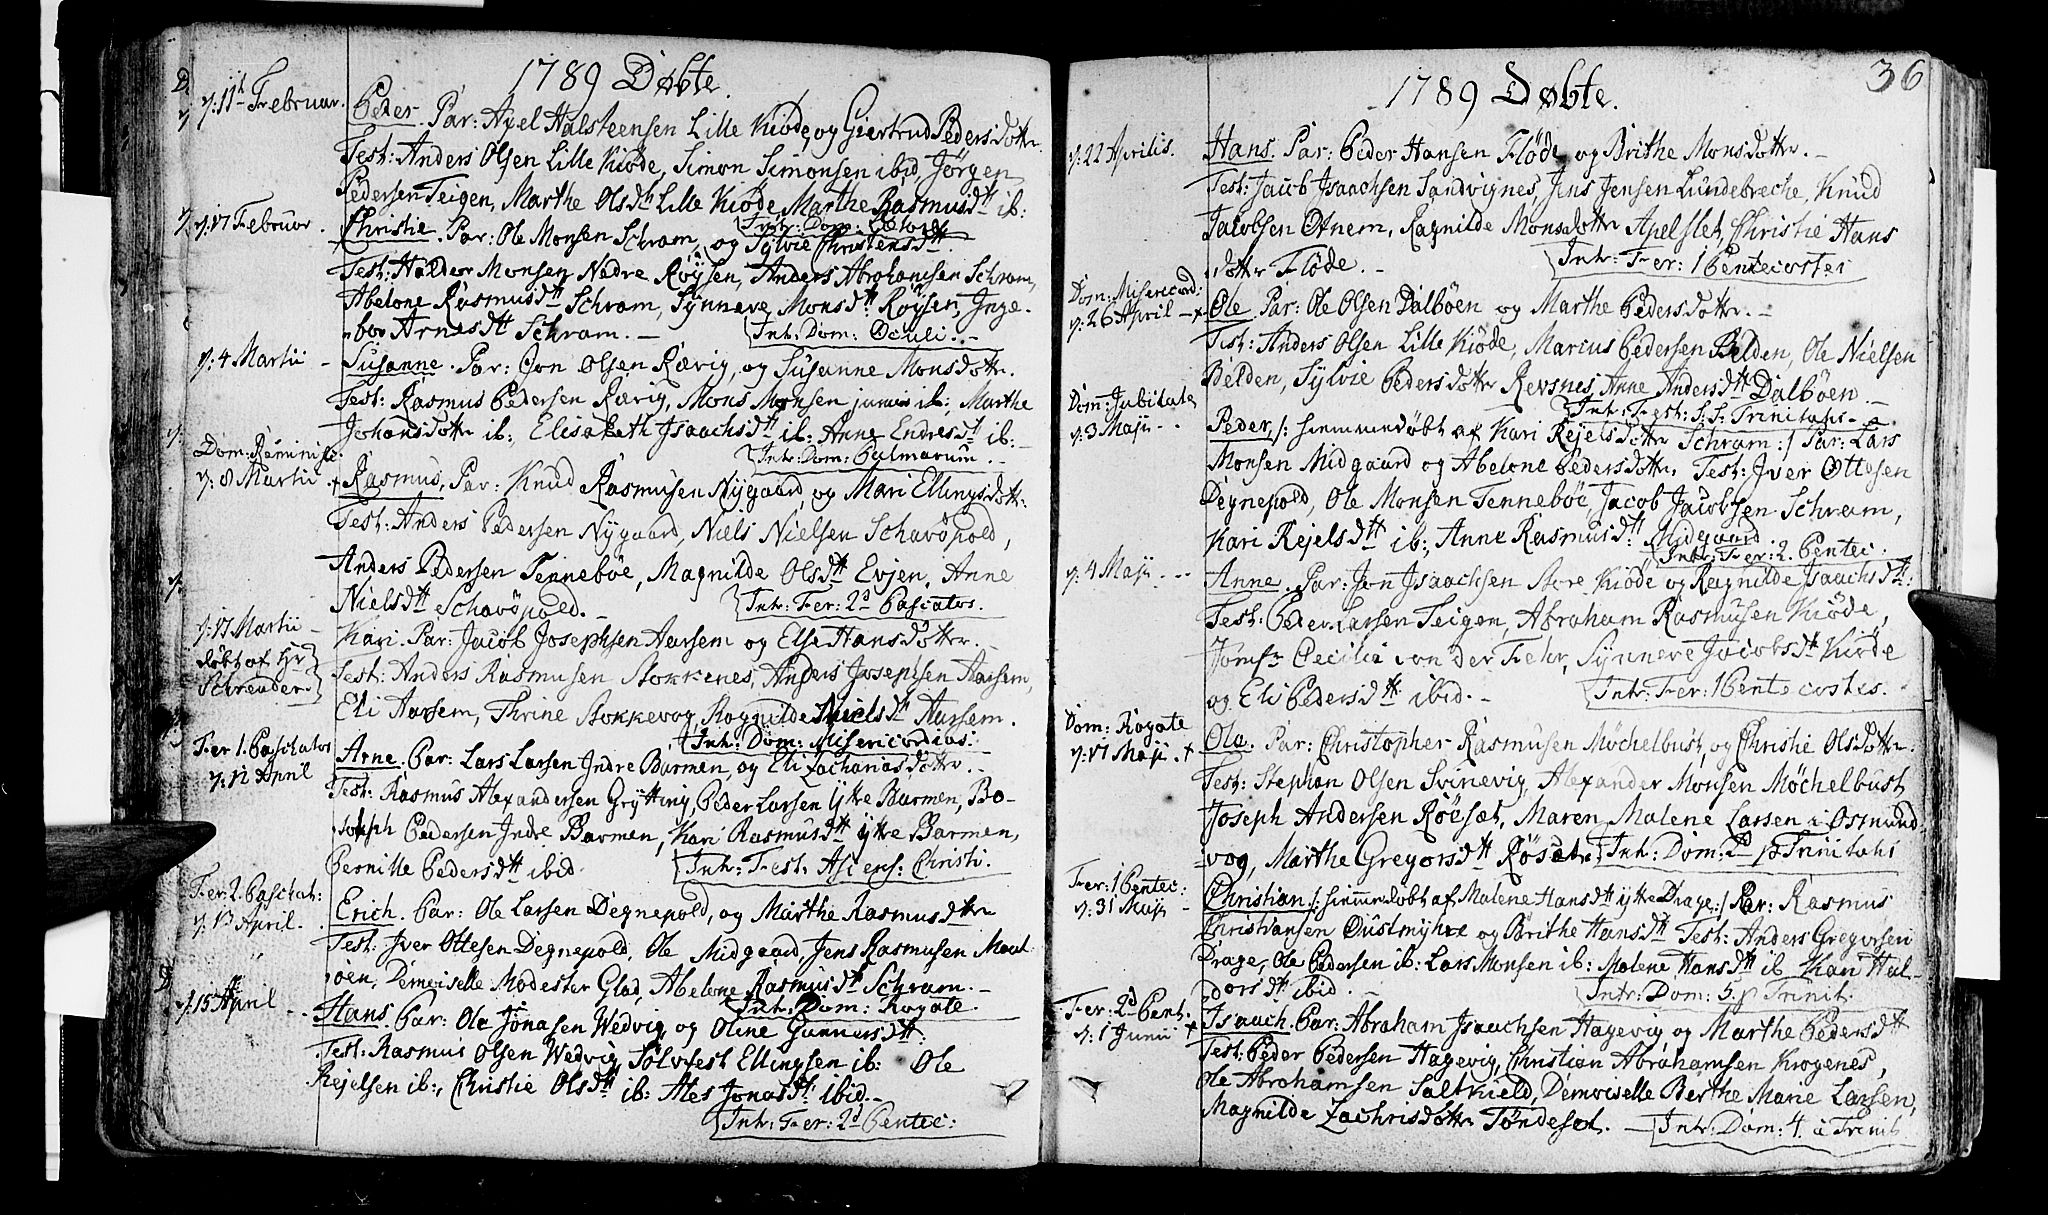 1789 Døbte.
d: 11t Februar.
Peder. Par: Axel Halsteensen Lille Kiöde, og Giertrud Pedersdotter.
Test: Anders Olsen Lille Kiöde, Simon Simonsen ibid, Jörgen
Pedersen Teigen, Marthe Olsdtt Lille Kiöde, Marthe Rasmusdtt ib:
Intr: Dom:
d: 17 Februar.
Christie. Par: Ole Monsen Schram, og Sylvie Christensdtt
Test: Haldor Monsen Nedre Röysen, Anders Abrahamsen Schram,
Abelone Rasmusdtt Schram, Synneve Monsdtt Röysen, Inge-
bor Arnesdtt Schram.
Intr: Dom: Oculi.
d: 4 Martii
Susanne. Par: Jon Olsen Rævig, og Susanne Monsdotter.
Test: Rasmus Pedersen Rævig, Mons Monsen junior ib:, Marthe
Johansdotter ib:, Elisabeth Isaachsdtt ib: Anne Endresdtt ib:
Intr: Dom: Palmarum.
Dom: Reminisc.
d: 8 Martii
Rasmus, Par: Knud Rasmusen Nygaard, og Mari Ellingsdotter.
Test: Anders Pedersen Nygaard, Niels Nielsen Schavöpold,
Anders Pedersen Tenneböe, Magnilde Olsdtt Evjen, Anne
Nielsdtt Schavöpold.
Intr: Fer: 2d Paschatos.
d: 17 Martii
døbt af Hr
Schreuder.
Kari. Par: Jacob Josephsen Aarsem og Else Hansdotter.
Test: Anders Rasmusen Stokkenes, Anders Josephsen Aarsem,
Eli Aarsem, Thrine Stokkevog, Rognilde Nielsdtt Aarsem.
Intr: Dom: Misericordias.
Fer 1. Paschatos
d: 12 April
Arne. Par: Lars Larsen Indre Barmen, og Eli Zachariasdotter.
Test: Rasmus Alexandersen Grytting, Peder Larsen Ytre Barmen, Bo-
Joseph Pedersen Indre Barmen, Kari Rasmusdtt Ytre Barmen,
Pernille Pedersdtt ibid.
Intr: Fest: Ascens: Christi.
Fer: 2. Paschat:
d: 13 April.
Erich. Par: Ole Larsen Degnepold, og Marthe Rasmusdtter
Test: Iver Ottesen Degnepold, Ole Midgaard, Jens Rasmusen Moul-
öen, Demoiselle Modester Glad, Abelone Rasmusdtt Schram.
Intr: Dom: Rogate.
d: 15 April
Hans. Par: Ole Jonasen Wedvig og Oline Gunnarsdtt.
Test: Rasmus Olsen Wedvig, Sølvfest Ellingsen ib: Ole
Rejelsen ib:, Christie Olsdtt ib: Ales Jonasdtt ibid.
Intr: Fer: 2d Pentec:
36
1789 Døbte.
d: 22 Aprilis.
Hans. Par: Peder Hansen Flöde, og Brithe Monsdotter.
Test: Jacob Isaachsen Sandvignes, Jens Jensen Lundebreche, Knud
Jacobsen Otnem, Ragnilde Monsdotter Apelset, Christie Hans
dotter Flöde.
Intr: Fer: 1 Pentecostes
Dom: Misericord:
d: 26 April
Ole. Par: Ole Olsen Dalböen og Marthe Pedersdotter.
Test: Anders Olsen Lille Kiöde, Marius Pedersen Belden, Ole Nielsen
Belden, Sylvie Pedersdotter Revsnes, Anne Andersdtt Dalböen.
Intr: Fest: S: S: Trinitatis.
Dom: Jubilate
d: 3 Maji
Peder, /: hiemmedøbt af Kari Rejelsdotter Schram :/ Par: Lars
Monsen Midgaard og Abelone Pedersdotter, Test: Iver Ottesen
Degnepold, Ole Monsen Tenneböe, Jacob Jacobsen Schram,
Kari Rejelsdtt ib:, Anne Rasmusdtt Midgaard.
Intr: Fer: 2. Pentec:
d: 4 Maji
Anne. Par: Jon Isaachsen Store Kiöde og Ragnilde Isaachsdtt:
Test: Peder Larsen Teigen, Abraham Rasmusen Kiöde,
Jomfr Cecilie von der Fehr, Synneve Jacobsdtt Kiöde
og Eli Pedersdtt ibid.
Intr: Fer: 1 Pentecostes.
Dom: Rogate
d: 17 Maji
Ola. Par: Christopher Rasmusen Möchelbust, og Christie Olsdotter.
Test: Stephan Olsen Svinevig, Alexander Monsen Möchelbust,
Joseph Andersen Röeset, Maren Malene Larsen i Osmund-
vog, Marthe Gregorsdtt Röset.
Intr: Dom: 2d p Trinitatis
Fer: 1 Pentec:
d: 31 Maji
Christian /: hiemmedøbt af Malene Hansdtt ytre Drage :/ Par: Rasmus
Christiansen Oustmyhre og Brithe Hansdtt Test: Anders Gregorsen
Drage, Ole Pedersen ib: Lars Monsen ib: Malene Hansdtt ib. Kari Hal-
dorsdtt ibid.
Intr: Dom: 5. p Trinit.
Fer: 2d Pent.
d: 1 Junii
Isaach. Par: Abraham Isaachsen Hagevig, og Marthe Pedersdtt
Test: Peder Pedersen Hagevig, Christian Abrahamsen Krogenes,
Ole Abrahamsen Saltkield, Demoiselle Berthe Marie Larsen,
Magnilde Zachrisdotter Töndeset.
Intr: Dom: 4. a Trinit